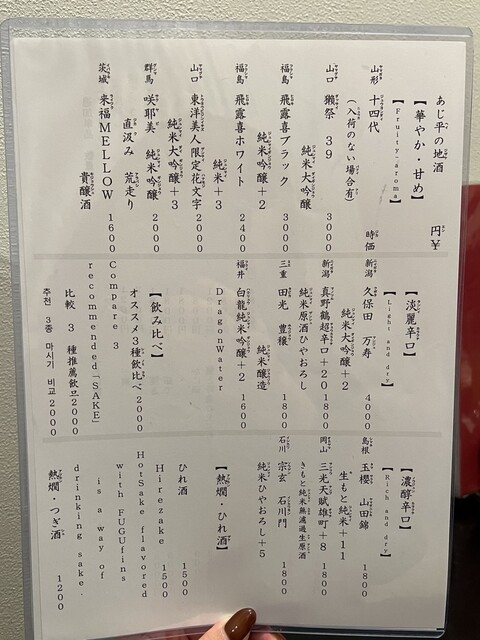 あじ平の地酒 円¥
【華やか・甘め】
【Fruity-aroma】
山形 十四代 時価
(入荷のない場合有)
山口 獺祭 39
純米大吟醸 3000
福島 飛露喜ブラック
純米吟醸+2 3000
福島 飛露喜ホワイト
純米+3 2400
山口 東洋美人限定花文字
純米大吟醸+3 2000
群馬 咲耶美 純米吟醸
直汲み 荒走り 2000
茨城 来福MELLOW
貴醸酒 1600
【淡麗辛口】
【Light and dry】
新潟 久保田 万寿
純米大吟醸+2 4000
新潟 真野鶴超辛口+20 1800
純米原酒ひやおろし
三重 田光 豊穣
純米醸造 1800
福井 白龍純米吟醸+2 1600
DragonWater
【飲み比べ】
オススメ3種飲比べ2000
Compare 3
recommended「SAKE」
比較 3 種推薦飲品2000
추천 3종 마시기 비교2000
【濃醇辛口】
【Rich and dry】
島根 玉櫻 山田錦
生もと純米+11 1800
岡山 三光天賦雄町+8 1800
きもと純米無濾過生原酒
石川 宗玄 石川門
純米ひやおろし+5 1800
【熱燗・ひれ酒】
ひれ酒 1500
Hirezake 1500
HotSake flavored
with FUGUfins
is a way of
drinking sake.
熱燗・つぎ酒 1200